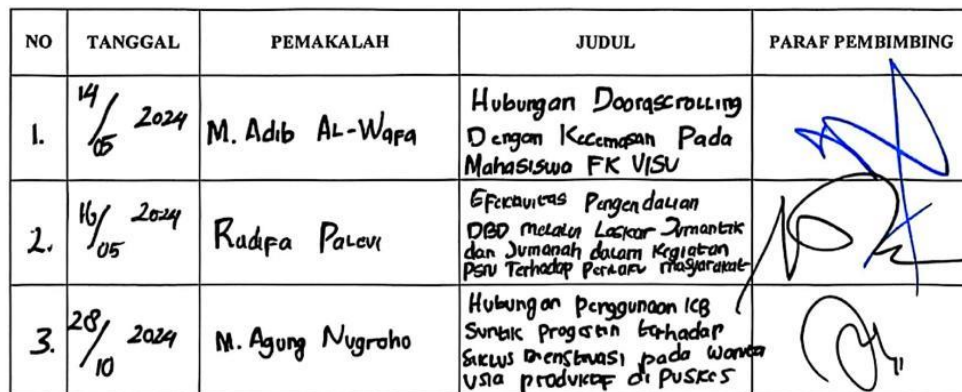 NO TANGGAL PEMAKALAH JUDUL PARAF PEMBIMBING
1. 14/05 2024 M. Adib AL-Wafa Hubungan Doomscrolling
Dengan Kecemasan Pada
Mahasiswa FK UISU
2. 16/05 2024 Radifa Palevi Efektivitas Pengendalian
DBD melalui Laskar Jumantik
dan Jumanah dalam Kegiatan
PSN Terhadap Perilaku masyarakat
3. 28/10 2024 M. Agung Nugroho Hubungan Penggunaan KB
Suntik Progestin terhadap
Siklus menstruasi pada wanita
usia produktif di PUSKES